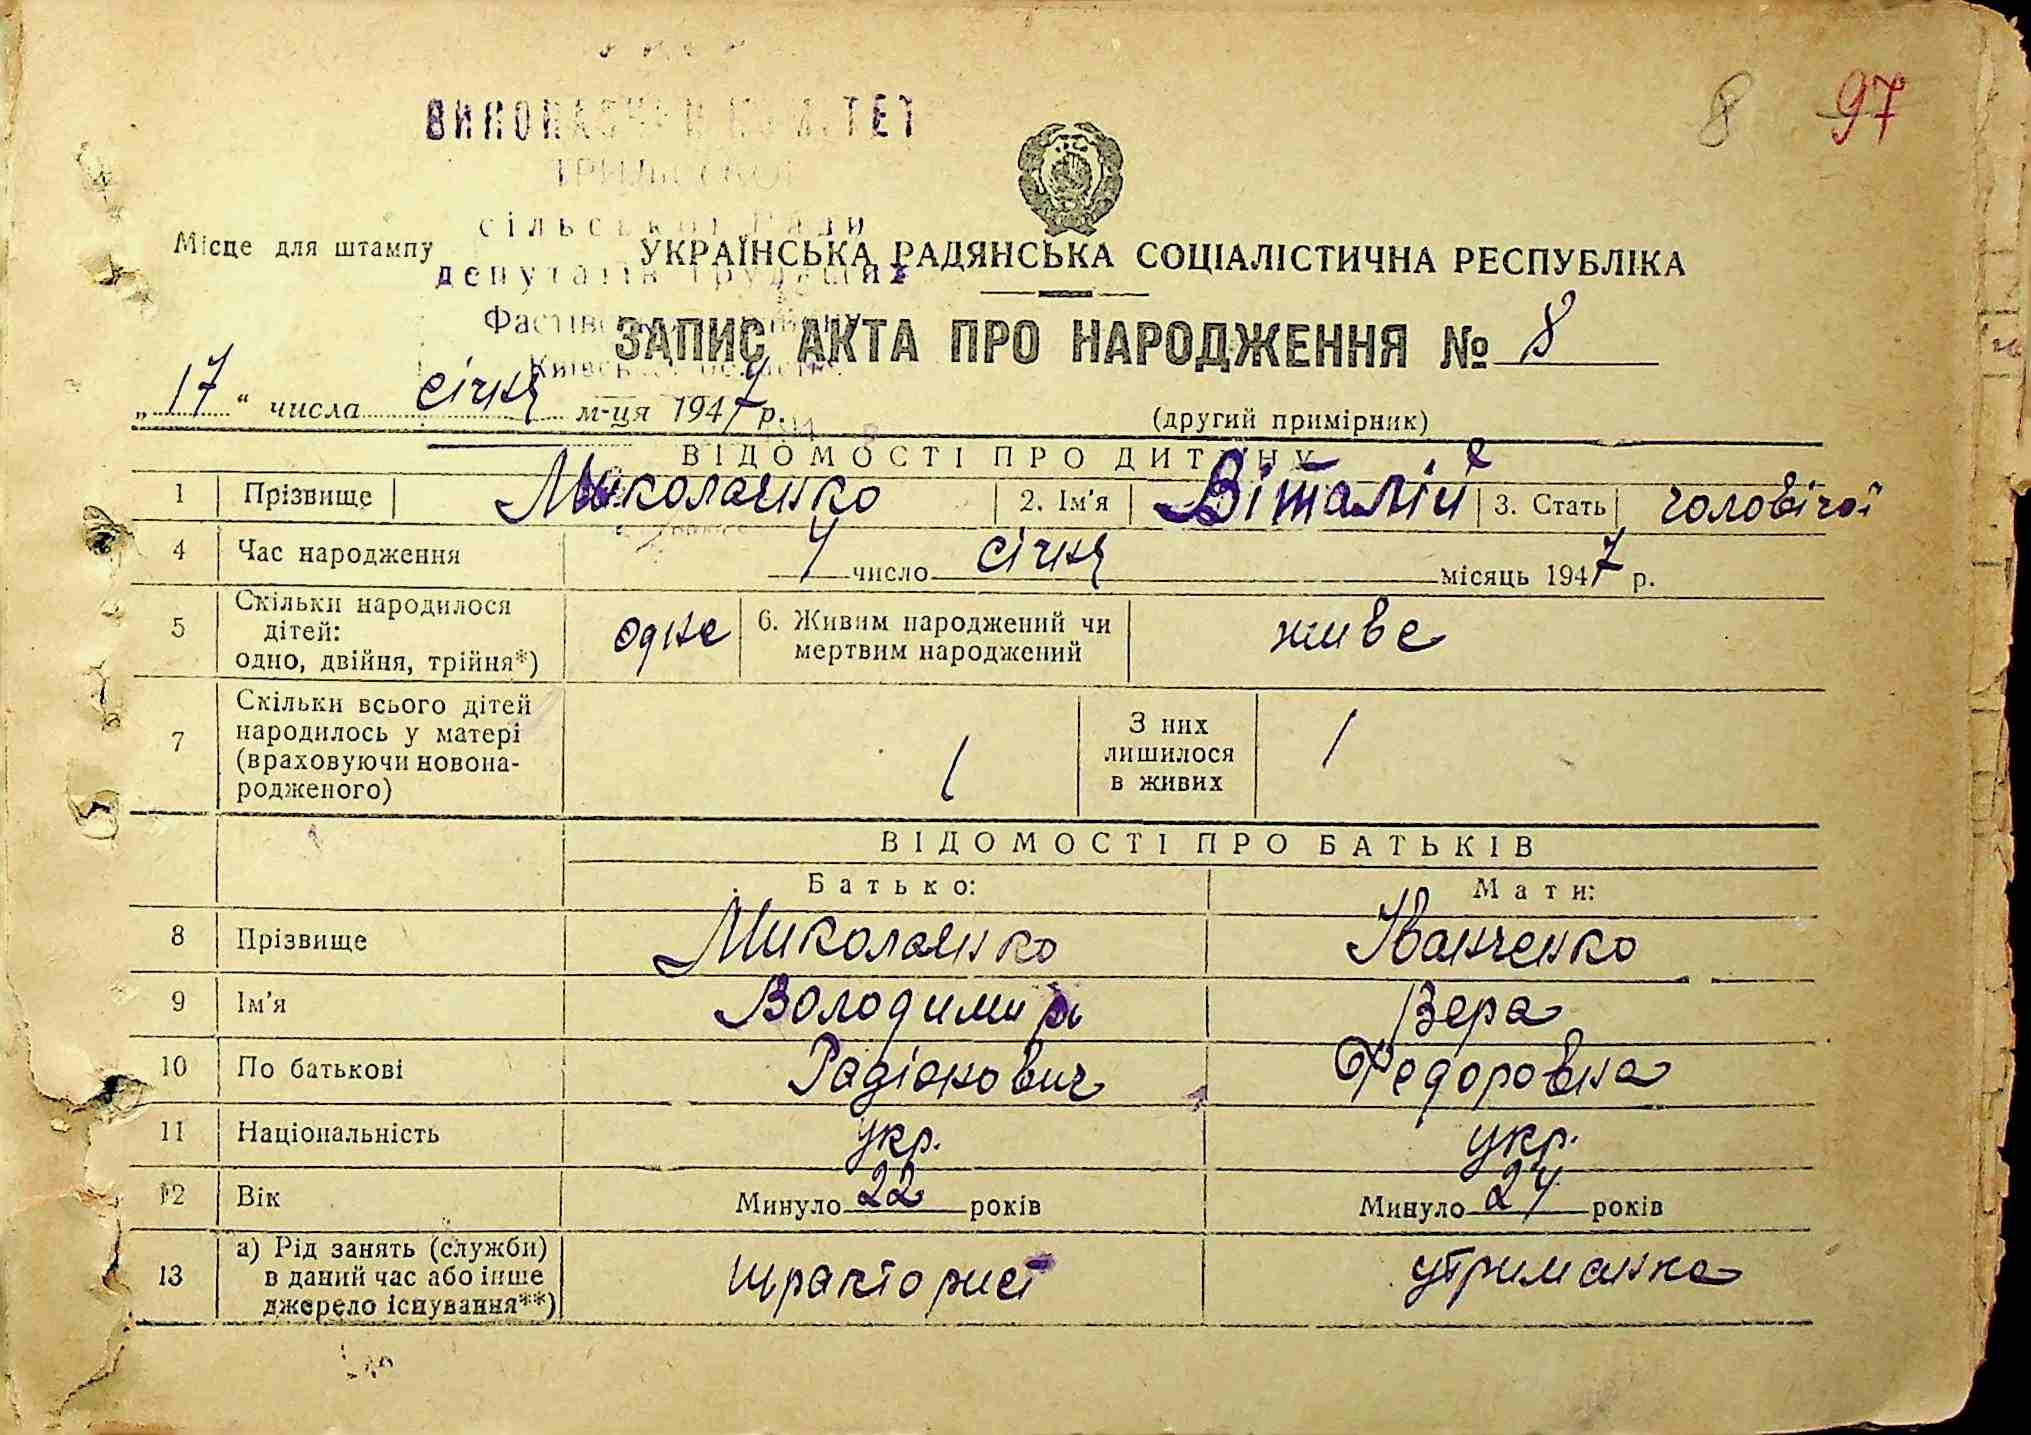 8 97
ВИКОНАВЧИЙ КОМІТЕТ
сільської Ради
Місце для штампу
депутатів трудящих
УКРАЇНСЬКА РАДЯНСЬКА СОЦІАЛІСТИЧНА РЕСПУБЛІКА
ЗАПИС АКТА ПРО НАРОДЖЕННЯ № 8
„17“ числа січня м-ця 1947 р.
(другий примірник)
ВІДОМОСТІ ПРО ДИТИНУ
1 Прізвище Миколаєнко 2. Ім'я Віталій 3. Стать чоловічої
4 Час народження 4 число січня місяць 1947 р.
5 Скільки народилося дітей: одно, двійня, трійня*) одне 6. Живим народжений чи мертвим народжений живе
7 Скільки всього дітей народилось у матері (враховуючи новонародженого) 1 З них лишилося в живих 1
ВІДОМОСТІ ПРО БАТЬКІВ
Батько: Мати:
8 Прізвище Миколаєнко Іванченко
9 Ім'я Володимир Вера
10 По батькові Радіонович Федоровна
11 Національність укр. укр.
12 Вік Минуло 22 років Минуло 24 років
13 а) Рід занять (служби) в даний час або інше джерело існування**) тракторист утриманка